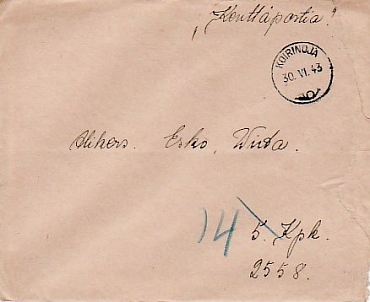 „Kenttäpostia"
KOIRINOJA
30. VI. 43
Alikers. Esko, Wiita.
14
5. Kpk.
2558.